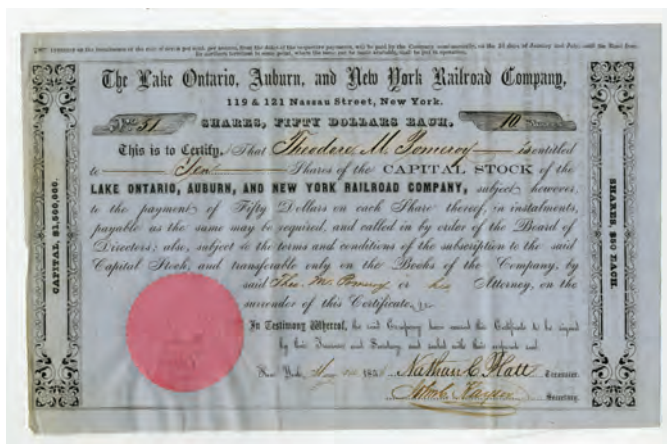 The Lake Ontario, Auburn, and New York Railroad Company,
119 & 121 Nassau Street, New York.
No 51 SHARES, FIFTY DOLLARS EACH, 10 Shares
This is to Certify, That Theodore M. Pomeroy is entitled
to Ten Shares of the CAPITAL STOCK of the
LAKE ONTARIO, AUBURN, AND NEW YORK RAILROAD COMPANY, subject however,
to the payment of Fifty Dollars on each Share thereof, in instalments,
payable as the same may be required, and called in by order of the Board of
Directors; also, subject to the terms and conditions of the subscription to the said
Capital Stock, and transferable only on the Books of the Company, by
said Theo. M. Pomeroy or his Attorney, on the
surrender of this Certificate.
In Testimony Whereof, the said Company have caused this Certificate to be signed
by their Treasurer and Secretary and sealed with their corporate seal.
New York, 185 Nathan C. Platt Treasurer.
Secretary.
CAPITAL, $1,500,000.
SHARES, $50 EACH.